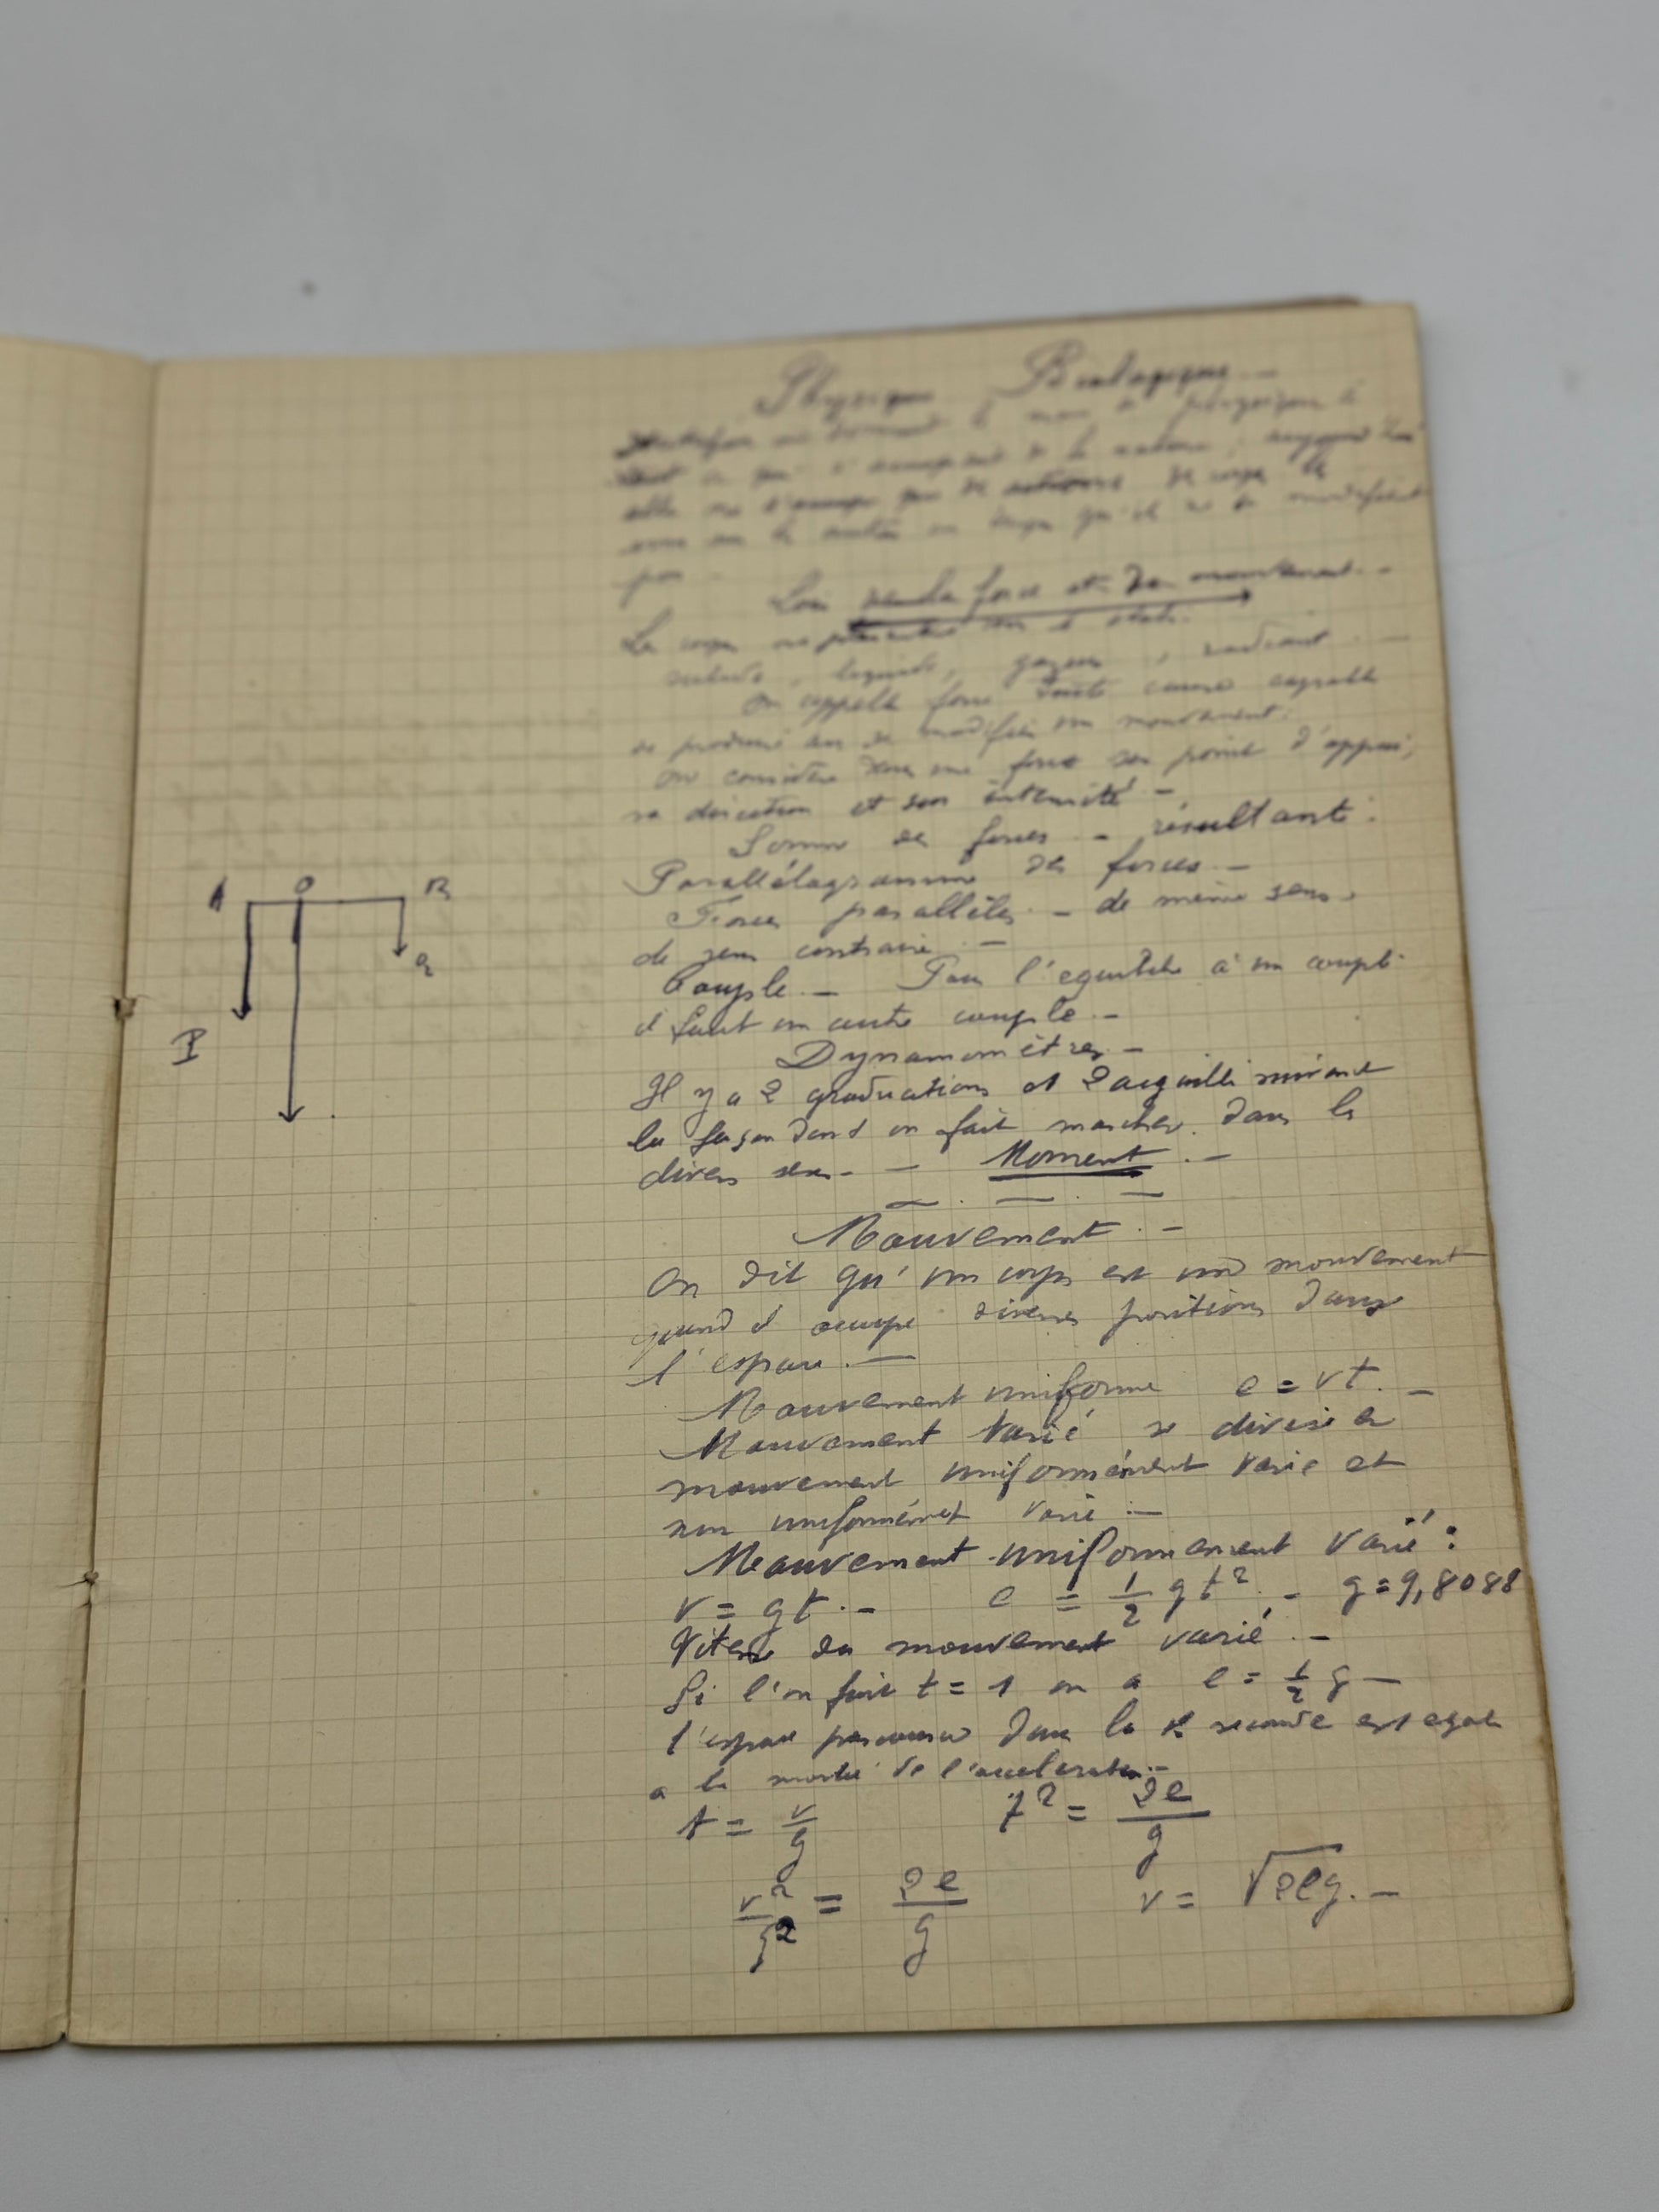 Physique Biologique. —
pas —
Lois de la force et du mouvement. —
Le corps se présente sous 4 états.
solide, liquide, gazeux, radiant. —
On appelle force toute cause capable
de produire ou de modifier un mouvement.
On considère dans une force son point d'appui,
sa direction et son intensité —
Somme des forces. — résultante :
Parallélogramme des forces. —
Forces parallèles. — de même sens.
de sens contraire. —
Couple. — Pour l'equilibre à un couple
il faut un autre couple. —
Dynamomètres. —
Il y a 2 graduations et 2 aiguilles suivant
la façon dont on fait marcher. dans les
divers sens. — Moment. —
A O B
Q
P
Mouvement. —
On dit qu'un corps est en mouvement
quand il occupe diverses positions dans
l'espace. —
Mouvement uniforme e = vt. —
Mouvement varié se divise en
mouvement uniformément varié et
non uniformément varié —
Mouvement uniformement varié :
v = gt. — e = 1/2 gt² — g = 9,8088
Vitesse du mouvement varié. —
Si l'on fait t = 1 on a e = 1/2 g —
l'espace parcouru dans la seconde est egal
a la moitié de l'acceleration. —
t = v/g t² = 2e/g
v²/g² = 2e/g v = √2eg. —